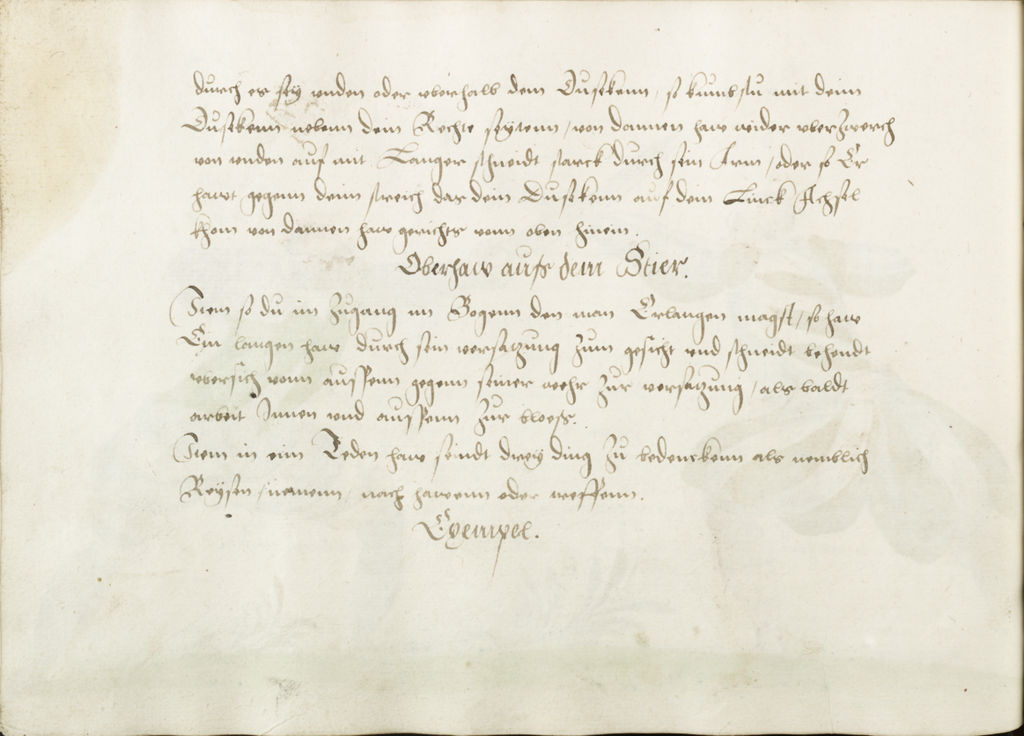 durch es sey unden oder uberhalb dem Dusekenn, so kumbstu mit deim
Dusekenn nebenn dein Rechte seytenn / von dannen haw wider uberzwerch
von unden auf mit Langer schneidt starck durch sein Arm / oder so Er
hawt gegenn deim streich das dein Dusekenn auf dein Linck Achsel
khom von dannen haw gerichts vonn oben hinein.
Oberhaw aufs dem Stier.
Item so du im Zugang im Bogenn den man Erlangen magst / so haw
Ein langen haw durch sein versatzung zum gesicht und schneidt behendt
ubersich vonn aussenn gegenn seiner wehr zur versatzung / als baldt
arbeit Innen und aussenn zur bloess.
Item in eim Jeden haw sendt drey ding zu bedenckenn als nemblich
Reysen / nemenn / nach hawenn oder treffenn.
Exempel.